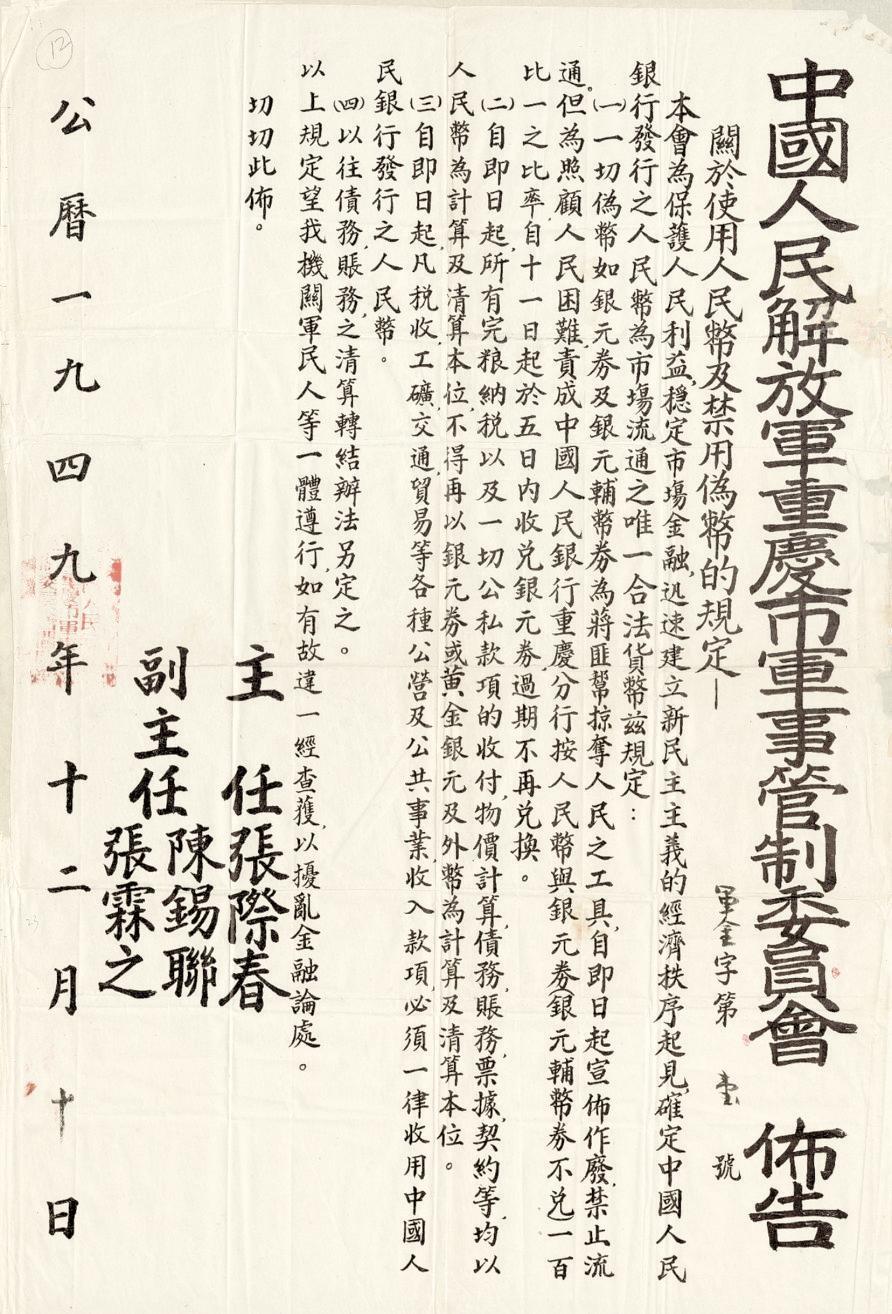 中國人民解放軍重慶市軍事管制委員會 佈告
軍金字第 壹 號
關於使用人民幣及禁用偽幣的規定—
本會為保護人民利益,穩定市場金融,迅速建立新民主主義的經濟秩序起見,確定中國人民
銀行發行之人民幣為市場流通之唯一合法貨幣茲規定:
(一)一切偽幣如銀元券及銀元輔幣券為蔣匪幫掠奪人民之工具,自即日起宣佈作廢,禁止流
通。但為照顧人民困難,責成中國人民銀行重慶分行按人民幣與銀元券(銀元輔幣券不兑)一百
比一之比率,自十一日起於五日內收兑銀元券過期不再兑換。
(二)自即日起,所有完粮納税以及一切公私款項的收付,物價計算,債務,賬務,票據,契約等,均以
人民幣為計算及清算本位,不得再以銀元券或黄金銀元及外幣為計算及清算本位。
(三)自即日起,凡税收,工礦,交通,貿易等各種公營及公共事業,收入款項,必須一律收用中國人
民銀行發行之人民幣。
(四)以往債務,賬務之清算轉結辦法另定之。
以上規定望我機關軍民人等一體遵行,如有故違一經查獲,以擾亂金融論處。
切切此佈。
主 任 張際春
副主任 陳錫聯
張霖之
公曆一九四九年十二月十日
12